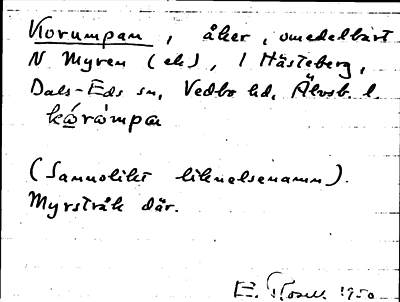 Korumpan, åker, omedelbart
N Myren (ek), i Hästeberg,
Dals-Eds sn, Vedbo hd, Älvsb. l.
kórómpa
(Sannolikt liknelsenamn).
Myrstråk där.
E. 1950